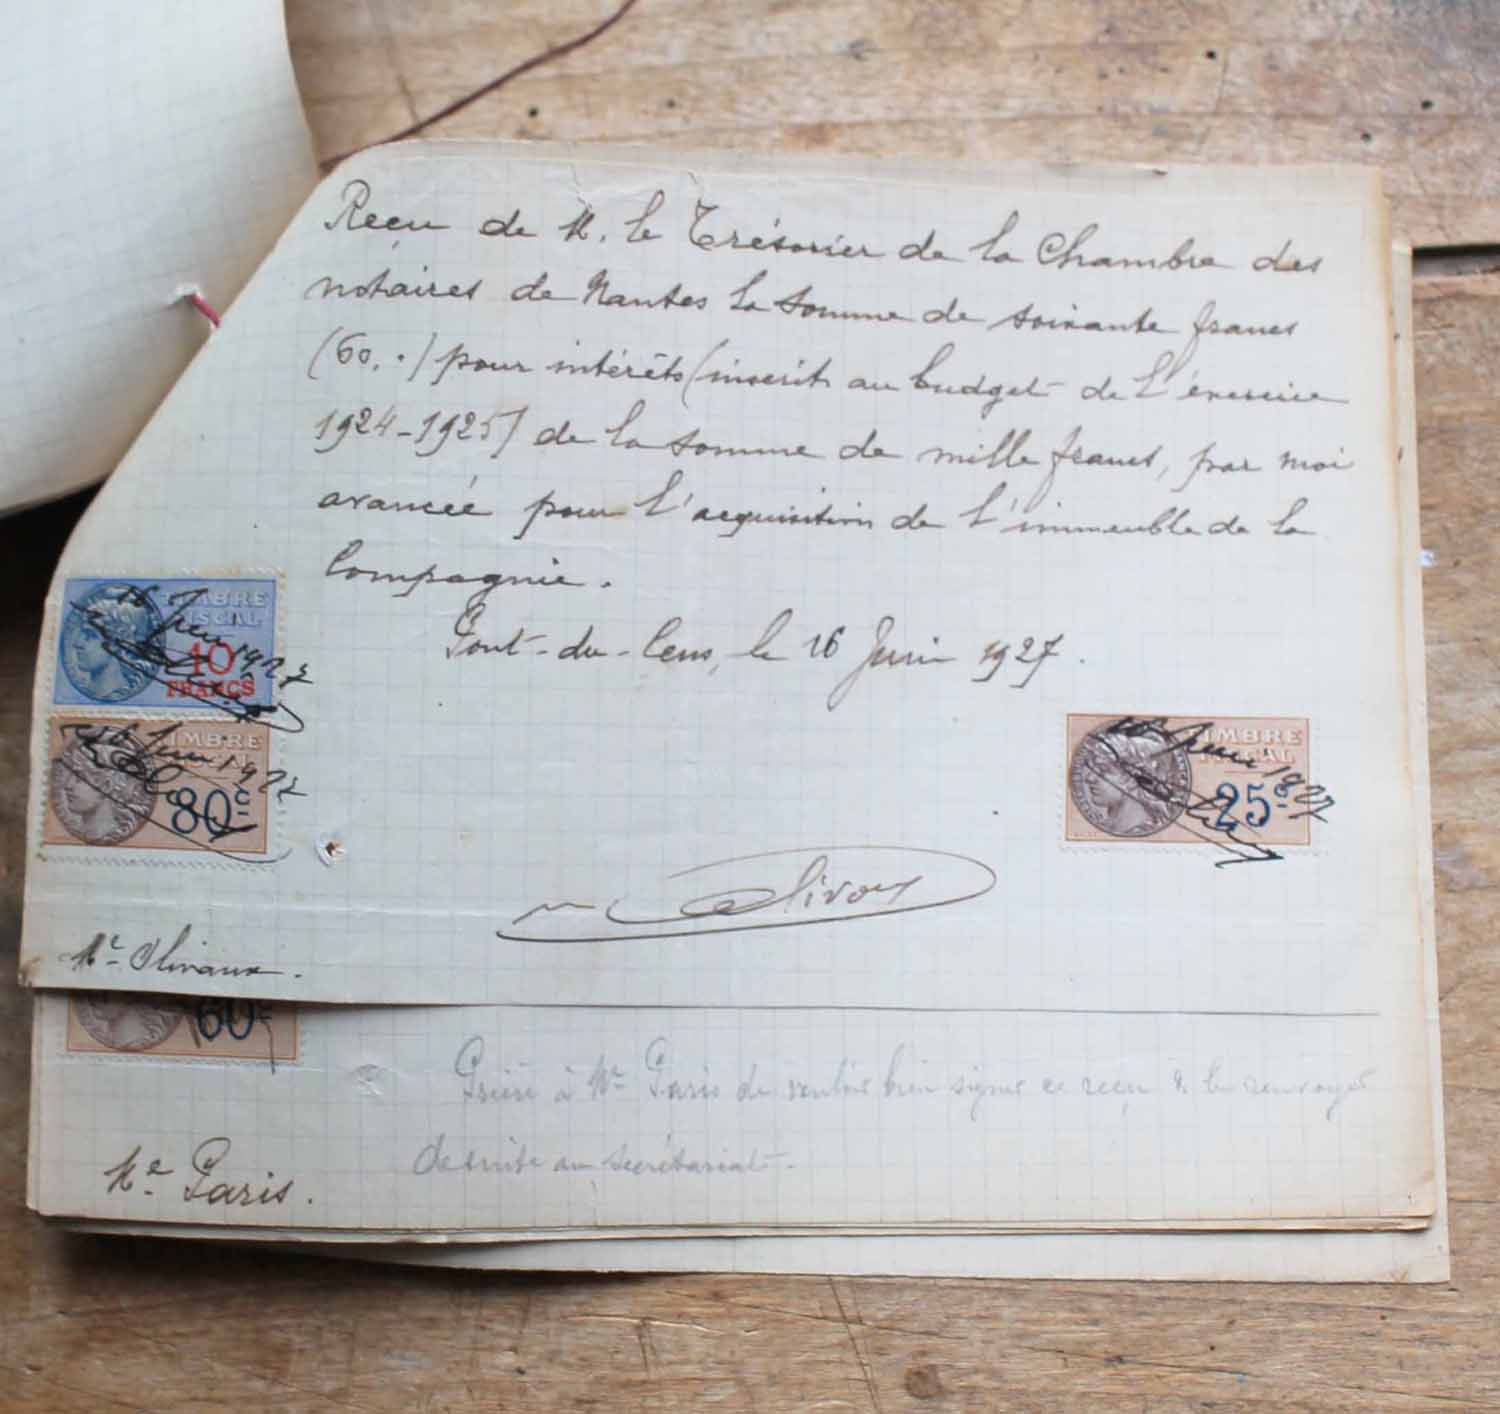 Reçu de M. le Trésorier de la Chambre des
notaires de Nantes la somme de soixante francs
(60. ») pour intérêts (inscrits au budget de l'exercice
1924-1925) de la somme de mille francs, par moi
avancée pour l'acquisition de l'immeuble de la
Compagnie.
Pont-du-Cens, le 16 Juin 1927.
TIMBRE
FISCAL
10
FRANCS
16 Juin 1927
TIMBRE
80c
16 Juin 1927
TIMBRE
FISCAL
25c
16 Juin 1927
Me Olivaux.
60c
Prière à Me Paris de vouloir bien signer ce reçu & le renvoyer
de suite au secrétariat.
Me Paris.